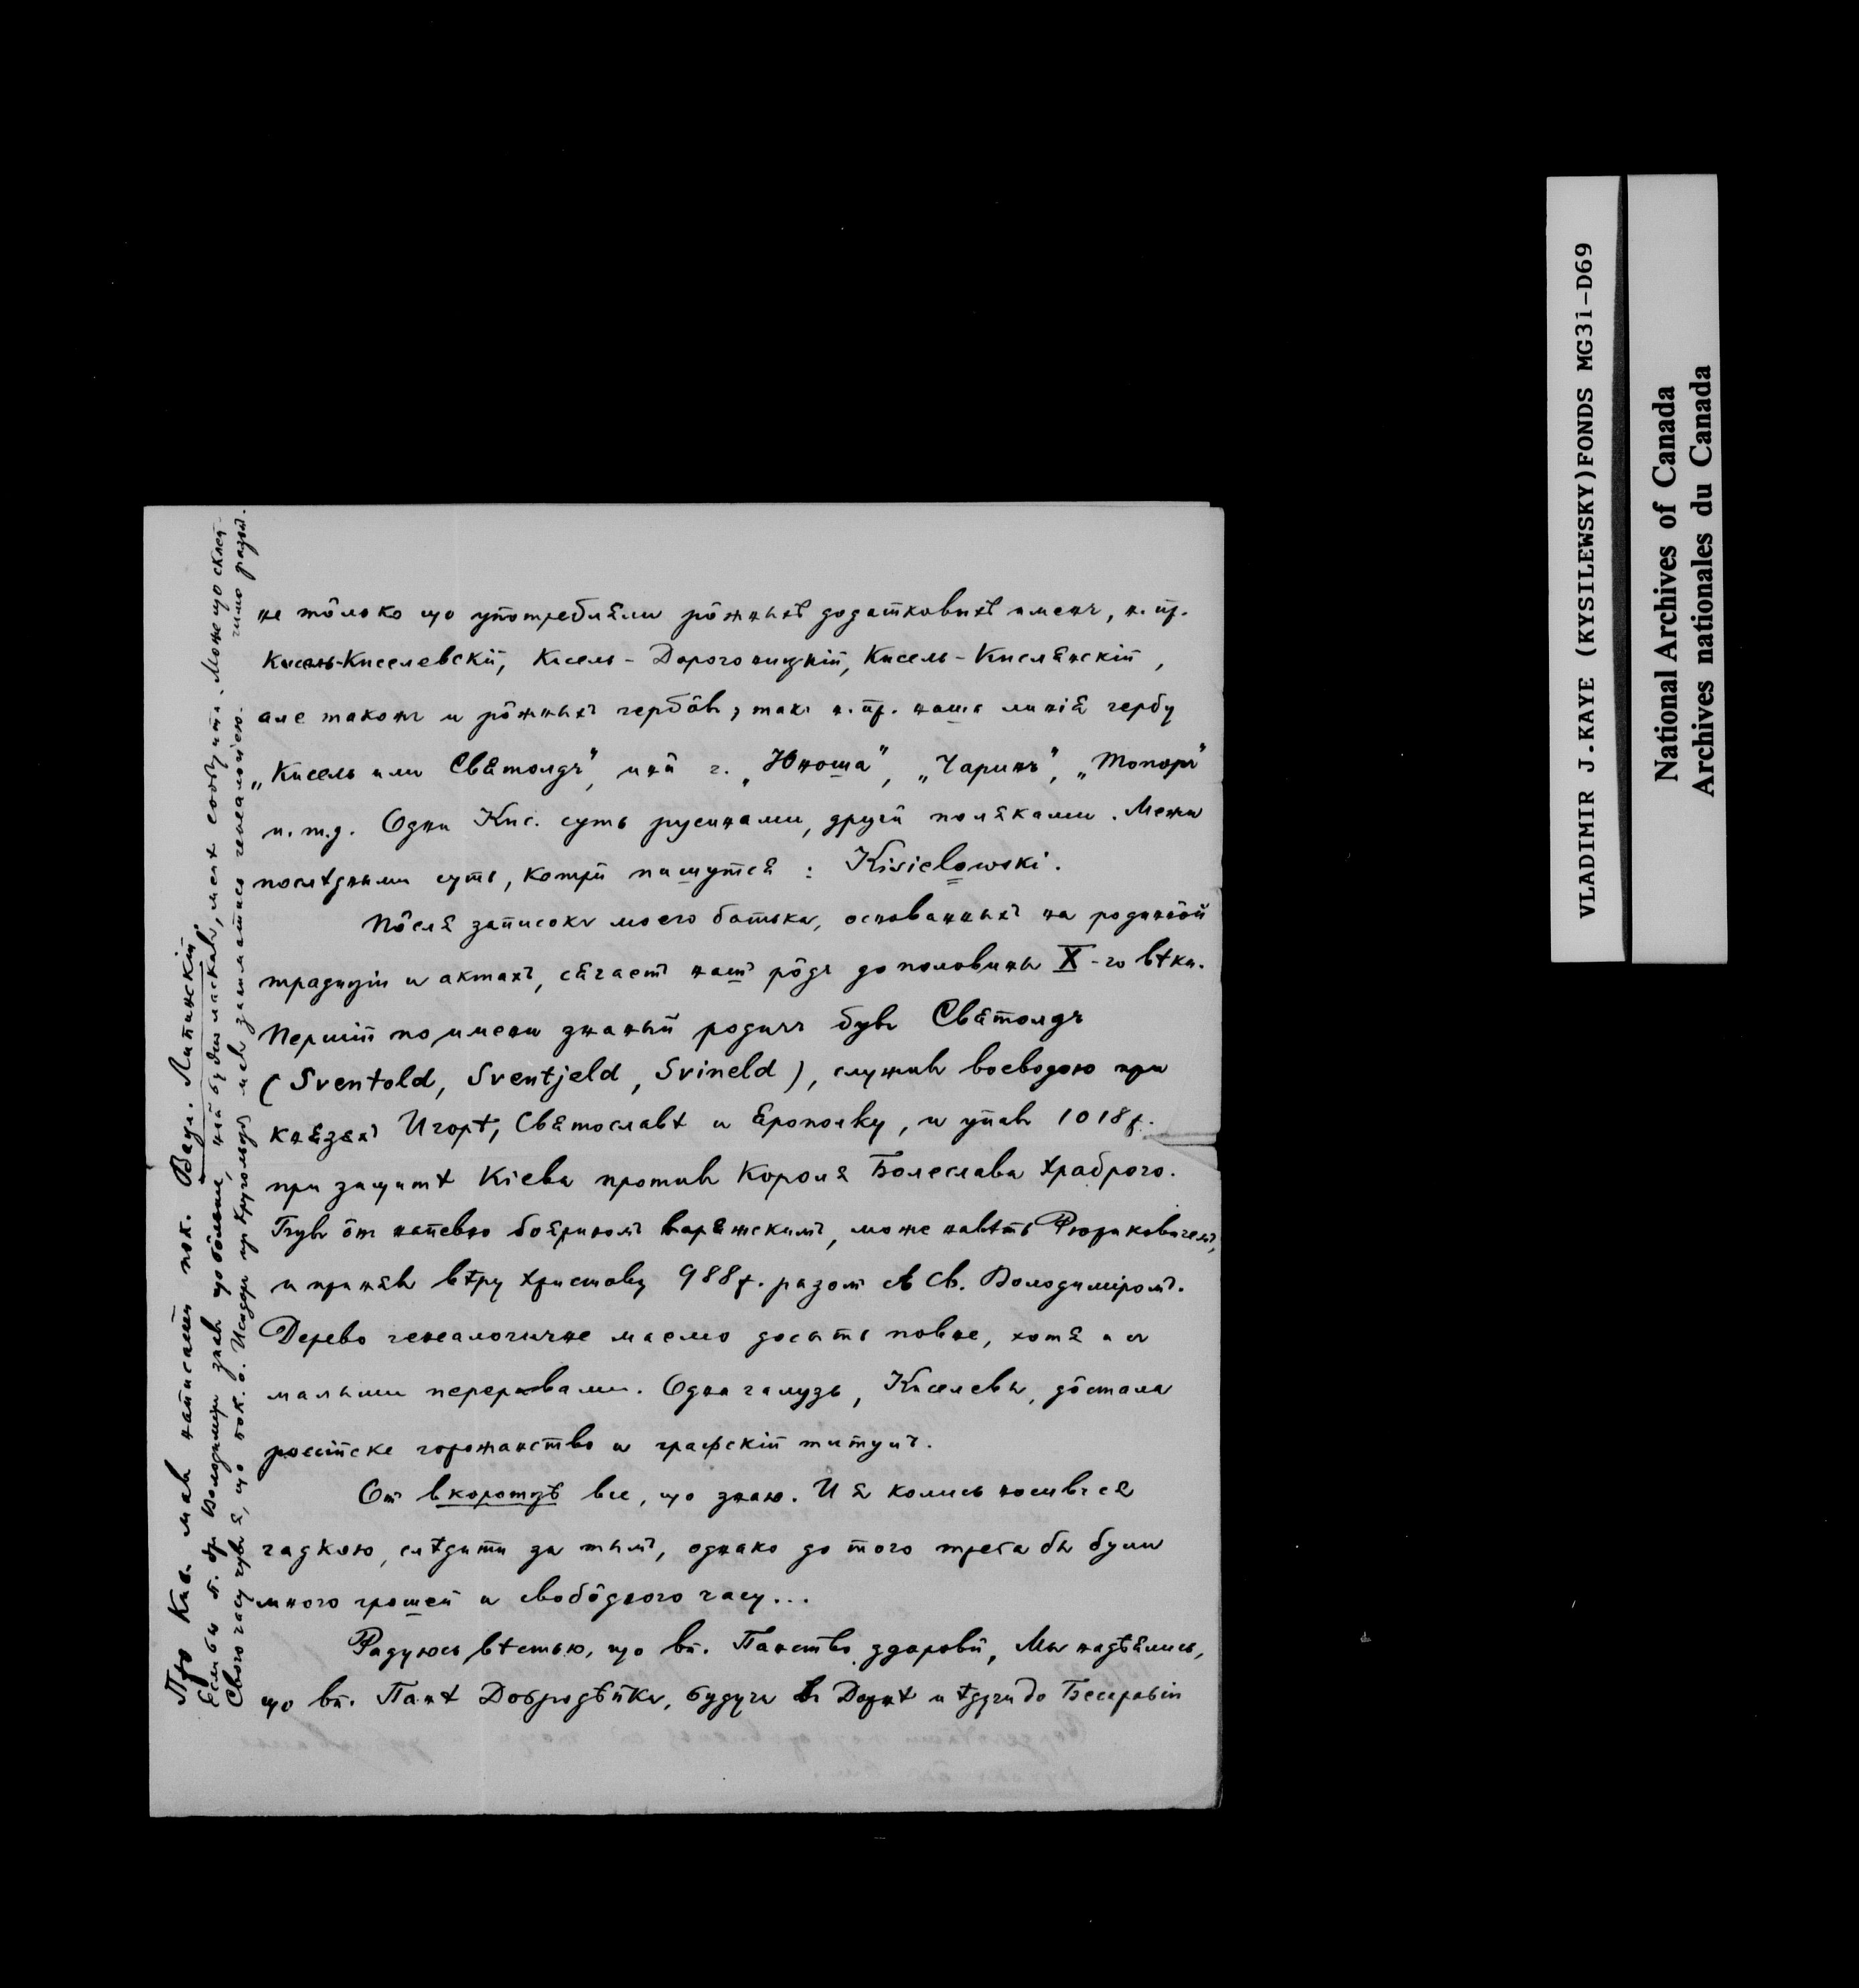 не тôлько що употребляли рôжныхъ додатковыхъ именъ, н. пр.
Кисель-Киселевскій, Кисель-Дорогоницкій, Кисель-Кислянскій,
але такожъ и рôжныхъ гербôвъ, такъ н. пр. наша линія гербу
„Кисель или Святолдъ", инй г. „Юноша", „Чаринъ", „Топоръ"
и. т. д. Одни Кис. суть русинами, другй поляками. Межи
послѣдними суть, котрй пишутся: Kisielowski.
Пôсля записокъ моего батька, основанныхъ на родиннôй
традиціи и актахъ, сягаетъ нашъ рôдъ до половины X-го вѣка.
Першій по имени знаный родичъ бувъ Святолдъ
(Sventold, Sventjeld, Svineld), служивъ воеводою при
князяхъ Игорѣ, Святославѣ и Ярополку, и упавъ 1018 р.
при защитѣ Кіева противъ Короля Болеслава Храброго.
Бувъ ôнъ напевно бояриномъ варяжскимъ, може навѣть Рюриковичемъ,
и принявъ вѣру Христову 988 р. разомъ съ Св. Володиміромъ.
Дерево генеалогичне маемо досыть повне, хотя и зъ
малыми перервами. Одна галузь, Киселевы, дôстала
россійске горожанство и графскій титулъ.
От вкоротцѣ все, що знаю. И я колись носився
гадкою, слѣдити за тымъ, однако до того треба бы було
много грошей и свобôдного часу...
Радуюсь вѣстью, що вп. Панство здоровй, Мы надѣялись,
що вп. Панѣ Добродѣйка, будучи въ Дорнѣ и ѣдучи до Бесарабіи
Про Кис. мавъ написати пок. Вацл. Липинскій.
Если бы п. др Володимиръ знавъ що бôльше, най буде ласкавъ, менѣ сообщити. Може що склеи-
Свого часу чувъ я, що пок. о. Исидоръ пр. Кругольцъ мавъ заниматись генеалогіею. чимо разомъ.
VLADIMIR J.KAYE (KYSILEWSKY)FONDS MG31-D69
National Archives of Canada
Archives nationales du Canada